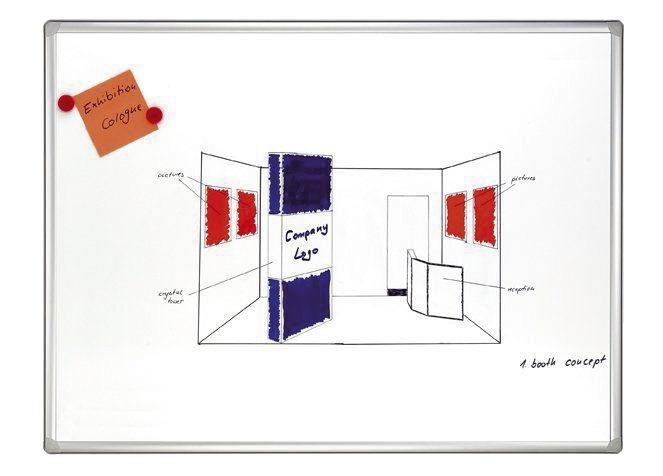 Exhibition
Cologne
pictures
pictures
Company
Logo
crystal
tower
reception
1. booth concept